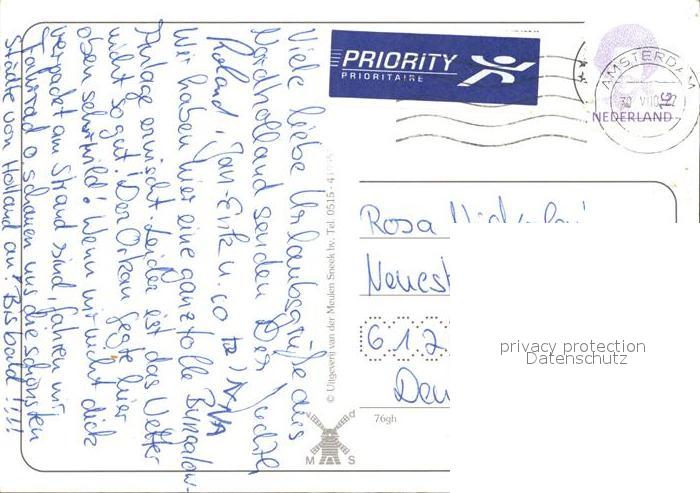 Viele liebe Urlaubsgrüße aus
Nordholland senden Dir Judith,
Roland, Jan-Erik u. Co
Wir haben hier eine ganz tolle Bungalow-
Anlage erwischt. Leider ist das Wetter
nicht so gut! Der Orkan fegt hier
oben sehr wild! Wenn wir nicht dick
verpackt am Strand sind, fahren wir
Fahrrad o. schauen uns die schönsten
Städte von Holland an! Bis bald!!!!
PRIORITY
PRIORITAIRE
AMSTERDAM
NEDERLAND
© Uitgeverij van der Meulen Sneek bv. Tel. 0515 - 41
Rosa
Neuest
6 1 2
Deu
76gh
M S
privacy protection
Datenschutz